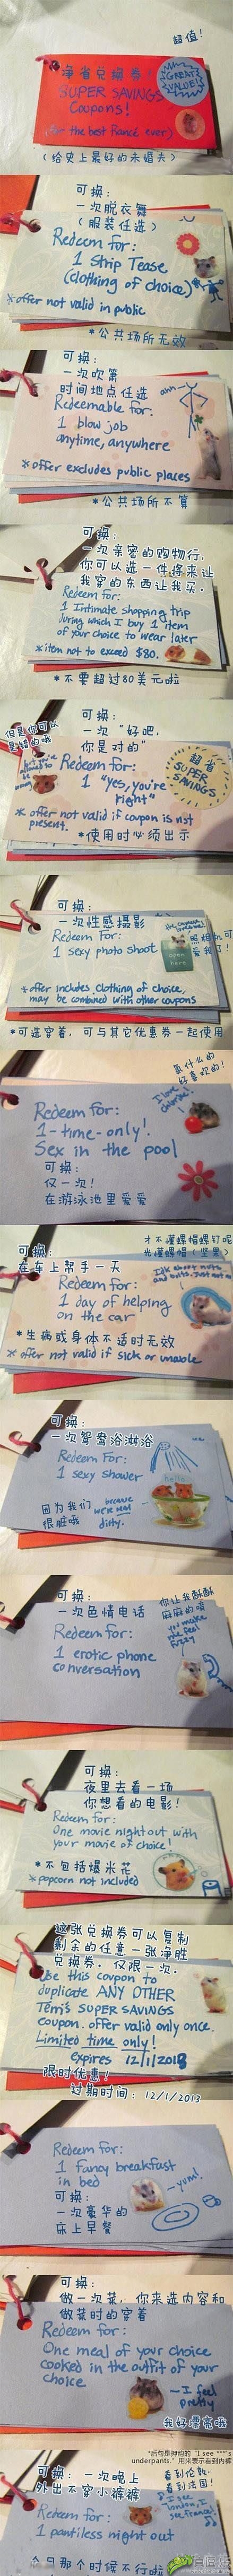 超值!
净省兑换券!
SUPER SAVINGS
Coupons!
GREAT
VALUE!
(for the best fiancé ever)
(给史上最好的未婚夫)
可换:
一次脱衣舞
(服装任选)
Redeem for:
1 Strip Tease
(clothing of choice)
*offer not valid in public
*公共场所无效
可换:
一次吹箫
时间地点任选
Redeemable for:
1 blow job
anytime, anywhere
*offer excludes public places
*公共场所不算
可换:
一次亲密的购物行,
你可以选一件将来让
我穿的东西让我买.
Redeem for:
1 Intimate shopping trip
during which I buy 1 item
of your choice to wear later
*item not to exceed $80.
*不要超过80美元啦
但是你可以
是错的哦
可换:
一次 "好吧,
你是对的"
Redeem for:
1 "yes, you're
right"
超省
SUPER
SAVINGS
*offer not valid if coupon is not
present.
*使用时必须出示
可换:
一次性感摄影
Redeem For:
1 sexy photo shoot
open
here
*offer includes clothing of choice,
may be combined with other coupons
*可选穿着, 可与其它优惠券一起使用
氯什么的
好喜欢的!
I love
chlorine!
Redeem for:
1-time-only!
Sex in the pool
可换:
仅一次!
在游泳池里爱爱
才不懂螺帽螺钉呢
光懂螺帽(坚果)
可换:
在车上帮手一天
Redeem for:
1 day of helping
on the car
*生病或身体不适时无效
*offer not valid if sick or unable
可换:
一次鸳鸯浴淋浴
Redeem for:
1 sexy shower
因为我们
很脏哦
because
we're real
dirty.
可换:
一次色情电话
你让我酥酥
麻麻的唷
you make
me feel
fuzzy
Redeem for:
1 erotic phone
conversation
可换:
夜里去看一场
你想看的电影!
Redeem for:
One movie night out with
your movie of choice!
*不包括爆米花
*popcorn not included
这张兑换券可以复制
剩余的任意一张净胜
兑换券. 仅限一次.
Use this coupon to
duplicate ANY OTHER
Terri's SUPER SAVINGS
coupon. offer valid only once.
Limited time only!
expires 12/1/2013
限时优惠!
过期时间: 12/1/2013
Redeem for:
1 fancy breakfast
in bed
-yum!
可换:
一次豪华的
床上早餐
可换:
做一次菜, 你来选内容和
做菜时的穿着
Redeem for:
One meal of your choice
cooked in the outfit of your
choice
-I feel
pretty
我好漂亮哦
*后句是押韵的 "I see ***'s
underpants." 用来表示看到内裤
可换: 一次晚上
外出不穿小裤裤
看到伦敦,
看到法国!
I see
London, I
see France!
Redeem for:
1 pantiless night out